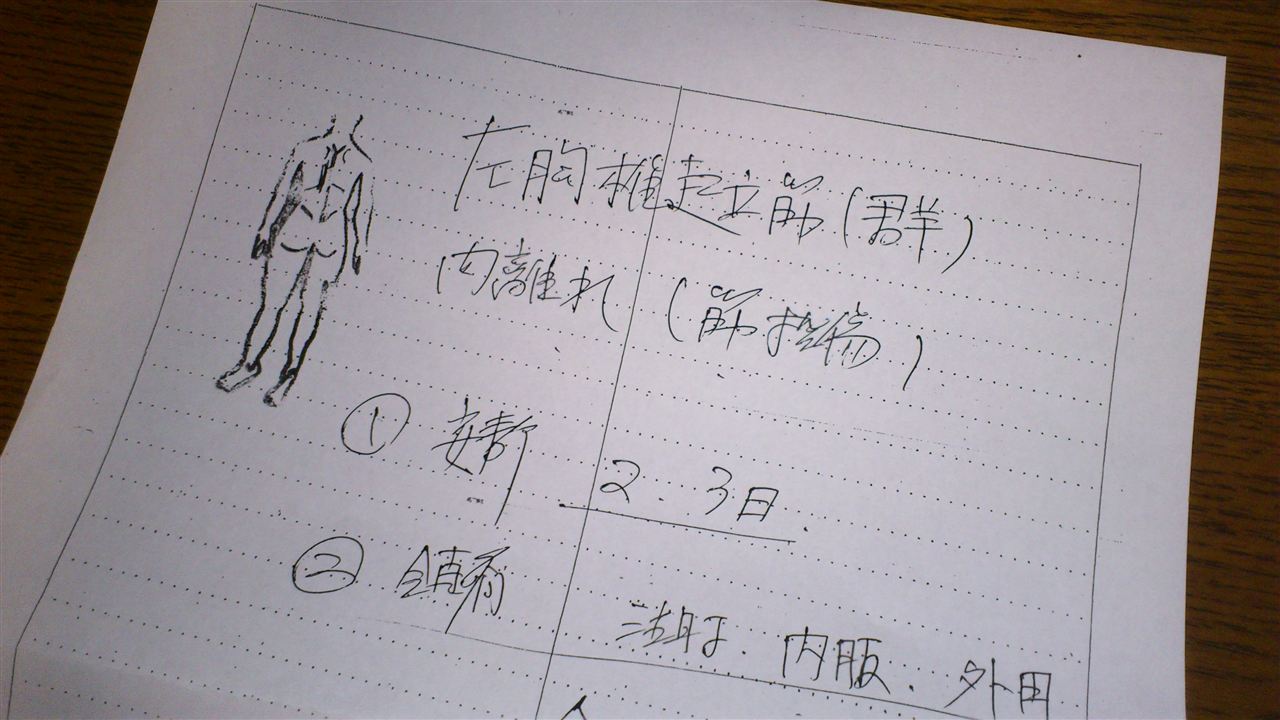 左胸椎起立筋(群)
肉離れ (筋損傷)
① 安静 2.3日.
② 鎮痛
注射. 内服. 外用